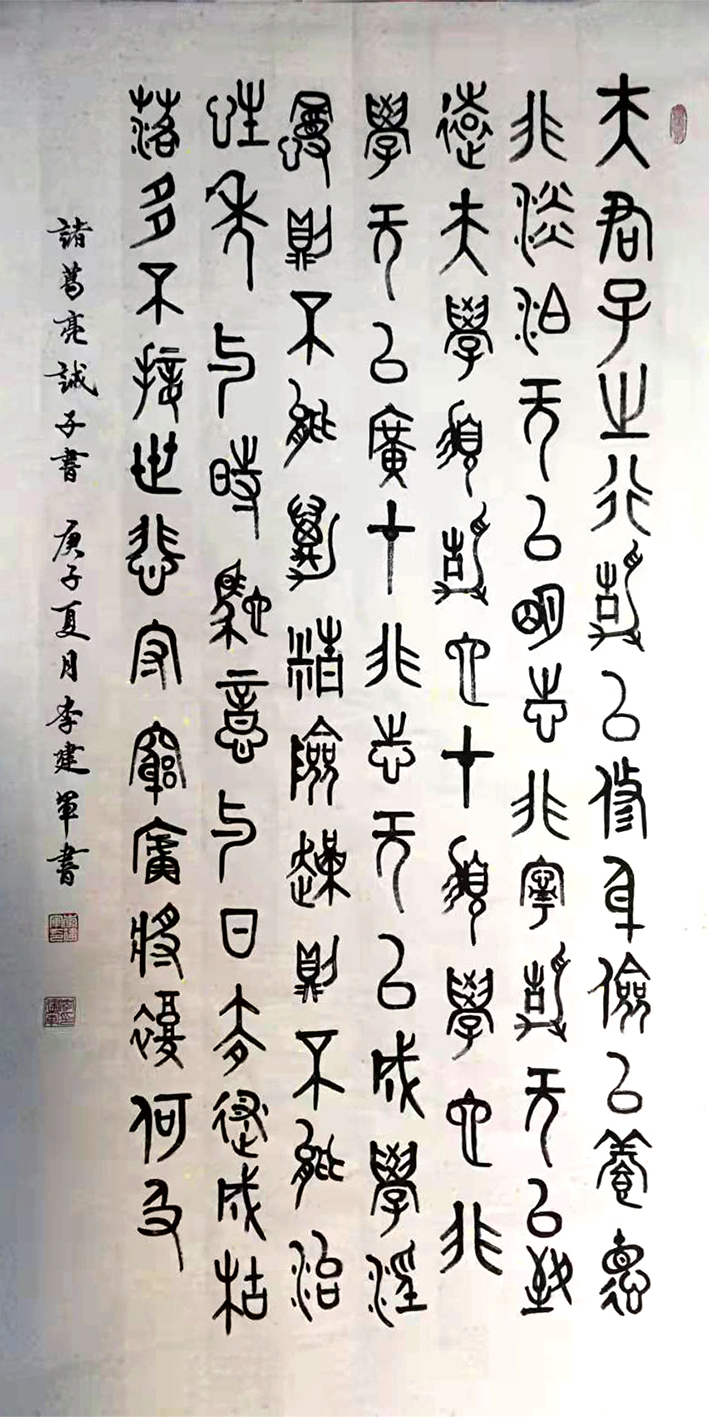 夫君子之行靜以修身儉以養悳
非淡泊无以明志非寧靜无以致
遠夫學須靜也才須學也非
學无以廣才非志无以成學淫
慢則不能勵精險躁則不能治
性年与時馳意与日去遂成枯
落多不接世悲守窮廬將復何及
諸葛亮誡子書 庚子夏月李建軍書